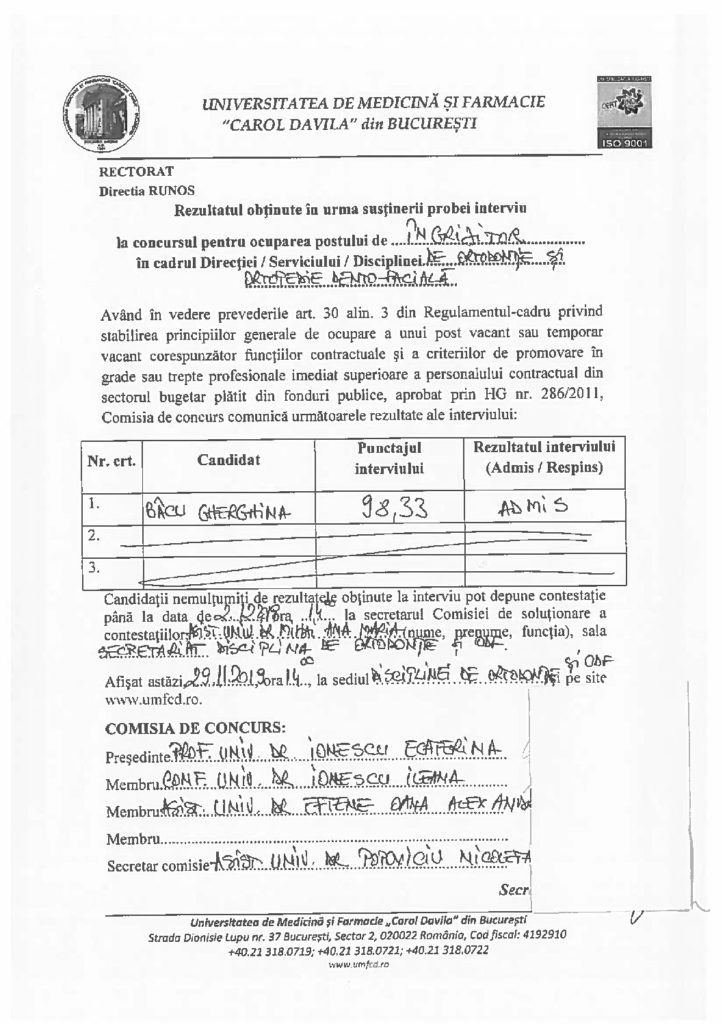 UNIVERSITATEA DE MEDICINĂ ȘI FARMACIE
"CAROL DAVILA" din BUCUREȘTI
ISO 9001
RECTORAT
Directia RUNOS
Rezultatul obținute în urma susținerii probei interviu
la concursul pentru ocuparea postului de ....ÎNGRIJITOR...............
în cadrul Direcției / Serviciului / Disciplinei DE ORTODONȚIE ȘI
ORTOPEDIE DENTO-FACIALĂ
Având în vedere prevederile art. 30 alin. 3 din Regulamentul-cadru privind
stabilirea principiilor generale de ocupare a unui post vacant sau temporar
vacant corespunzător funcțiilor contractuale și a criteriilor de promovare în
grade sau trepte profesionale imediat superioare a personalului contractual din
sectorul bugetar plătit din fonduri publice, aprobat prin HG nr. 286/2011,
Comisia de concurs comunică următoarele rezultate ale interviului:
Nr. crt. Candidat Punctajul interviului Rezultatul interviului (Admis / Respins)
1. BÂCU GHERGHINA 98,33 ADMIS
2.
3.
Candidații nemulțumiți de rezultatele obținute la interviu pot depune contestație
până la data de ora 14 la secretarul Comisiei de soluționare a
contestațiilor ASIST. UNIV. DR ANA MARIA (nume, prenume, funcția), sala
SECRETARIAT DISCIPLINA DE ORTODONȚIE ȘI ODF.
Afișat astăzi, 29.11.2019 ora 14 00, la sediul DISCIPLINEI DE ORTODONȚIE ȘI ODF și pe site
www.umfcd.ro.
COMISIA DE CONCURS:
Președinte PROF. UNIV. DR IONESCU ECATERINA
Membru CONF. UNIV. DR IONESCU ILEANA
Membru ASIST. UNIV. DR EFTENE OANA ALEX
Membru
Secretar comisie ASIST UNIV. DR POPOVICIU NICOLETA
Secr
Universitatea de Medicină și Farmacie „Carol Davila" din București
Strada Dionisie Lupu nr. 37 București, Sector 2, 020022 România, Cod fiscal: 4192910
+40.21 318.0719; +40.21 318.0721; +40.21 318.0722
www.umfcd.ro